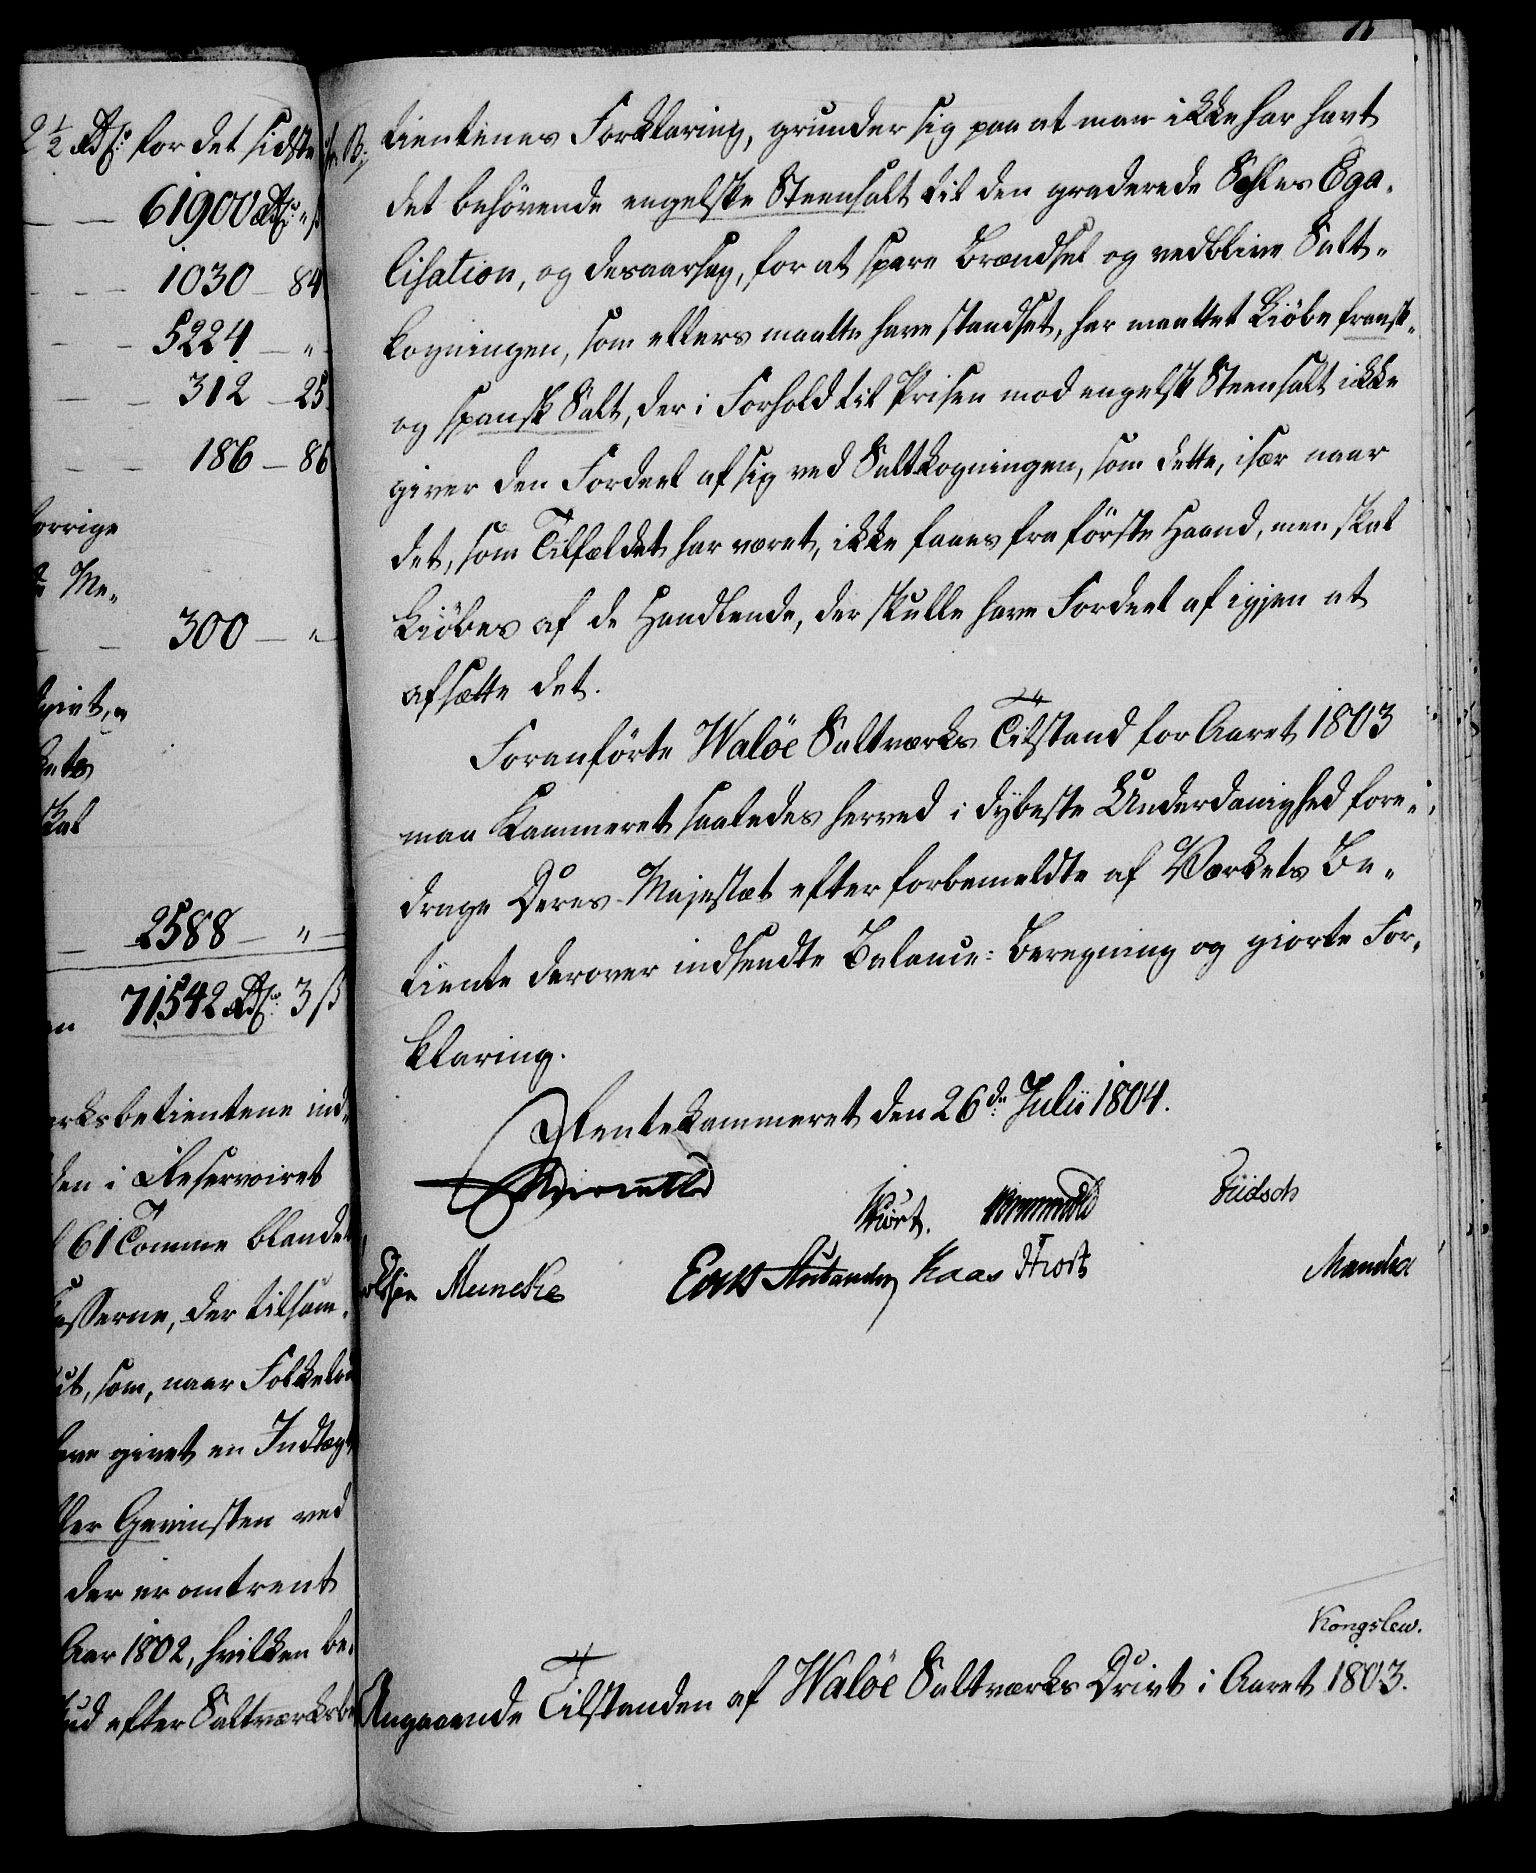 2 1/2 Rdlr for det sidste
61900 Rdr " ß
1030 – 84
5224 – "
312 – 25
186 – 86
forrige
Me„
300 – "
givet,
skal
2588 – "
71542 Rdr 3 ß
erksbetientene ind„
den i Reservoiret
61 Tomme blandet
asserne, der tilsam„
ut, som, naar Folkeløn
have givet en Indtægt
ller Gevinsten ved
der er omtrent
Aar 1802, hvilken be„
ud efter Saltværksbe
tientenes Forklaring, grunder sig paa at man ikke har havt
det behövende engelske Steensalt til den graderede Sohles Ega„
lisation, og desaarsag, for at spare Brændsel og vedblive Salt„
kogningen, som ellers maatte have standset, har maattet kiöbe fransk„
og spansk Salt, der i Forhold til Prisen mod engelsk Steensalt ikke
giver den Fordeel af sig ved Saltkogningen, som dette, især naar
det, som Tilfældet har været, ikke faaes fra förste Haand, men skal
kiöbes af de Handlende, der skulle have Fordeel af igjen at
afsætte det.
Foranförte Waløe Saltværks Tilstand for Aaret 1803
maa Kammeret saaledes herved i dybeste Underdanighed fore„
drage Deres Majestæt efter forbemeldte af Værkets Be„
tiente derover indsendte Balance-Beregning og giorte For„
klaring.
Rentekammeret den 26de Julii 1804.
Wormskiold
Lüdsch
Muncke
Kaas
Frost
Manthe
Kongslew.
Angaaende Tilstanden af Waløe Saltværks Drivt i Aaret 1803.